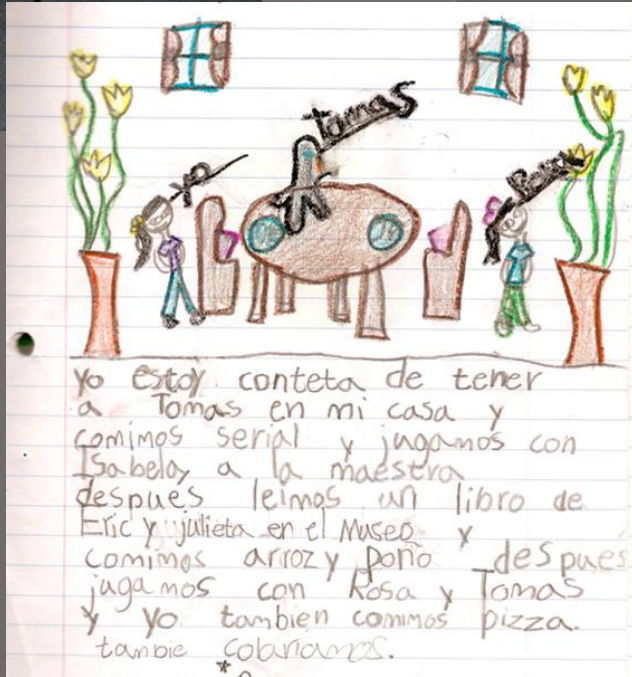 Tomas
yo
yo estoy conteta de tener
a Tomas en mi casa y
comimos serial y jugamos con
Isabela, a la maestra
despues leimos un libro de
Eric y julieta en el Museo y
comimos arroz y poño despues
jugamos con Rosa y Tomas
y yo tambien comimos pizza.
tanbie
*